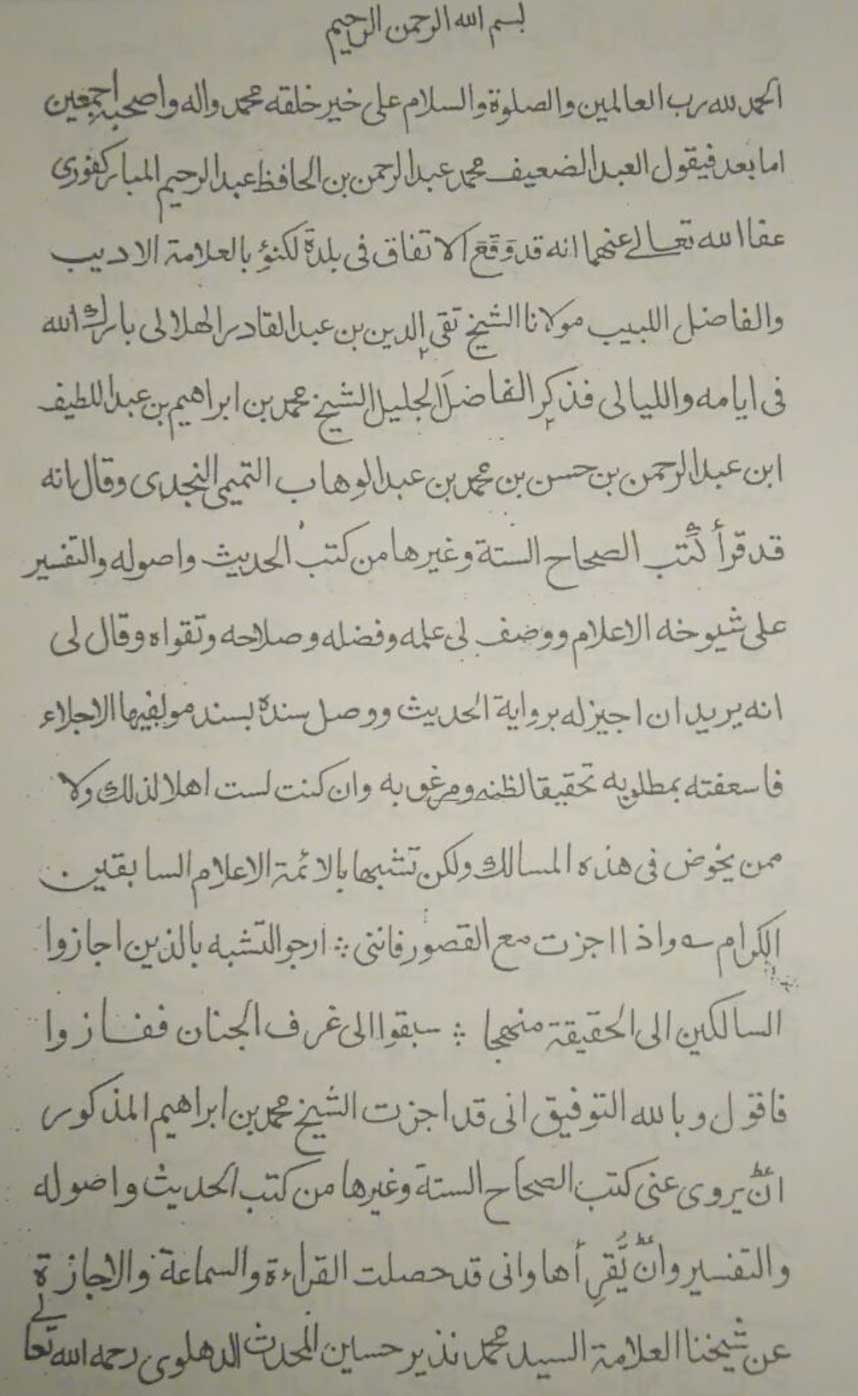 بسم الله الرحمن الرحيم
الحمد لله رب العالمين والصلوة والسلام على خير خلقه محمد واله واصحبه اجمعين
اما بعد فيقول العبد الضعيف محمد عبد الرحمن بن الحافظ عبد الرحيم المباركفوري
عفا الله تعالے عنهما انه قد وَقَعَ الاتفاق فى بلدة لكنؤ بالعلامة الاديب
والفاضل اللبيب مولانا الشيخ تقى الدين بن عبد القادر الهلالى بارك الله
فى ايامه والليالى فذكر الفاضلَ الجليل الشيخ محمد بن ابراهيم بن عبد اللطيف
ابن عبد الرحمن بن حسن بن محمد بن عبد الوهاب التميمى النجدى وقال انه
قد قرأ كُتب الصحاح الستة وغيرها من كتب الحديث واصوله والتفسير
على شيوخه الاعلام ووصف لى علمه وفضله وصلاحه وتقواه وقال لى
انه يريد ان اجيز له برواية الحديث ووصل سنده بسند مولفيها الاجلاء
فاسعفته بمطلوبه تحقيقا لظنه ومرغوبه وان كنت لست اهلا لذلك ولا
ممن يخوض فى هذه المسالك ولكن تشبها بالائمة الاعلام السابقين
الكرام ؎ واذا اجزت مع القصور فاننى ؞ ارجو التشبه بالذين اجازوا
السالكين الى الحقيقة منهجا ؞ سبقوا الى غرف الجنان ففازوا
فاقول وبالله التوفيق انى قد اجزت الشيخ محمد بن ابراهيم المذكور
ان يروى عنى كتب الصحاح الستة وغيرها من كتب الحديث واصوله
والتفسير وان يُقرِأها وانى قد حصلت القراءة والسماعة والاجازة
عن شيخنا العلامة السيد محمد نذير حسين المحدث الدهلوى رحمه الله تعالے